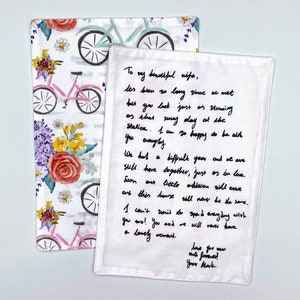 To my beautiful wife,
Its been so long since we met
but you look just as stunning
as that sunny day at the
station. I am so happy to be with
you everyday.
We had a difficult year and we are
still here together, just as in love.
Soon our little addition will come
and this house will never be the same.
I can't wait to spend everyday with
you and! You and we will never have
a lonely moment.
Love you now
and forever!
Your Mark